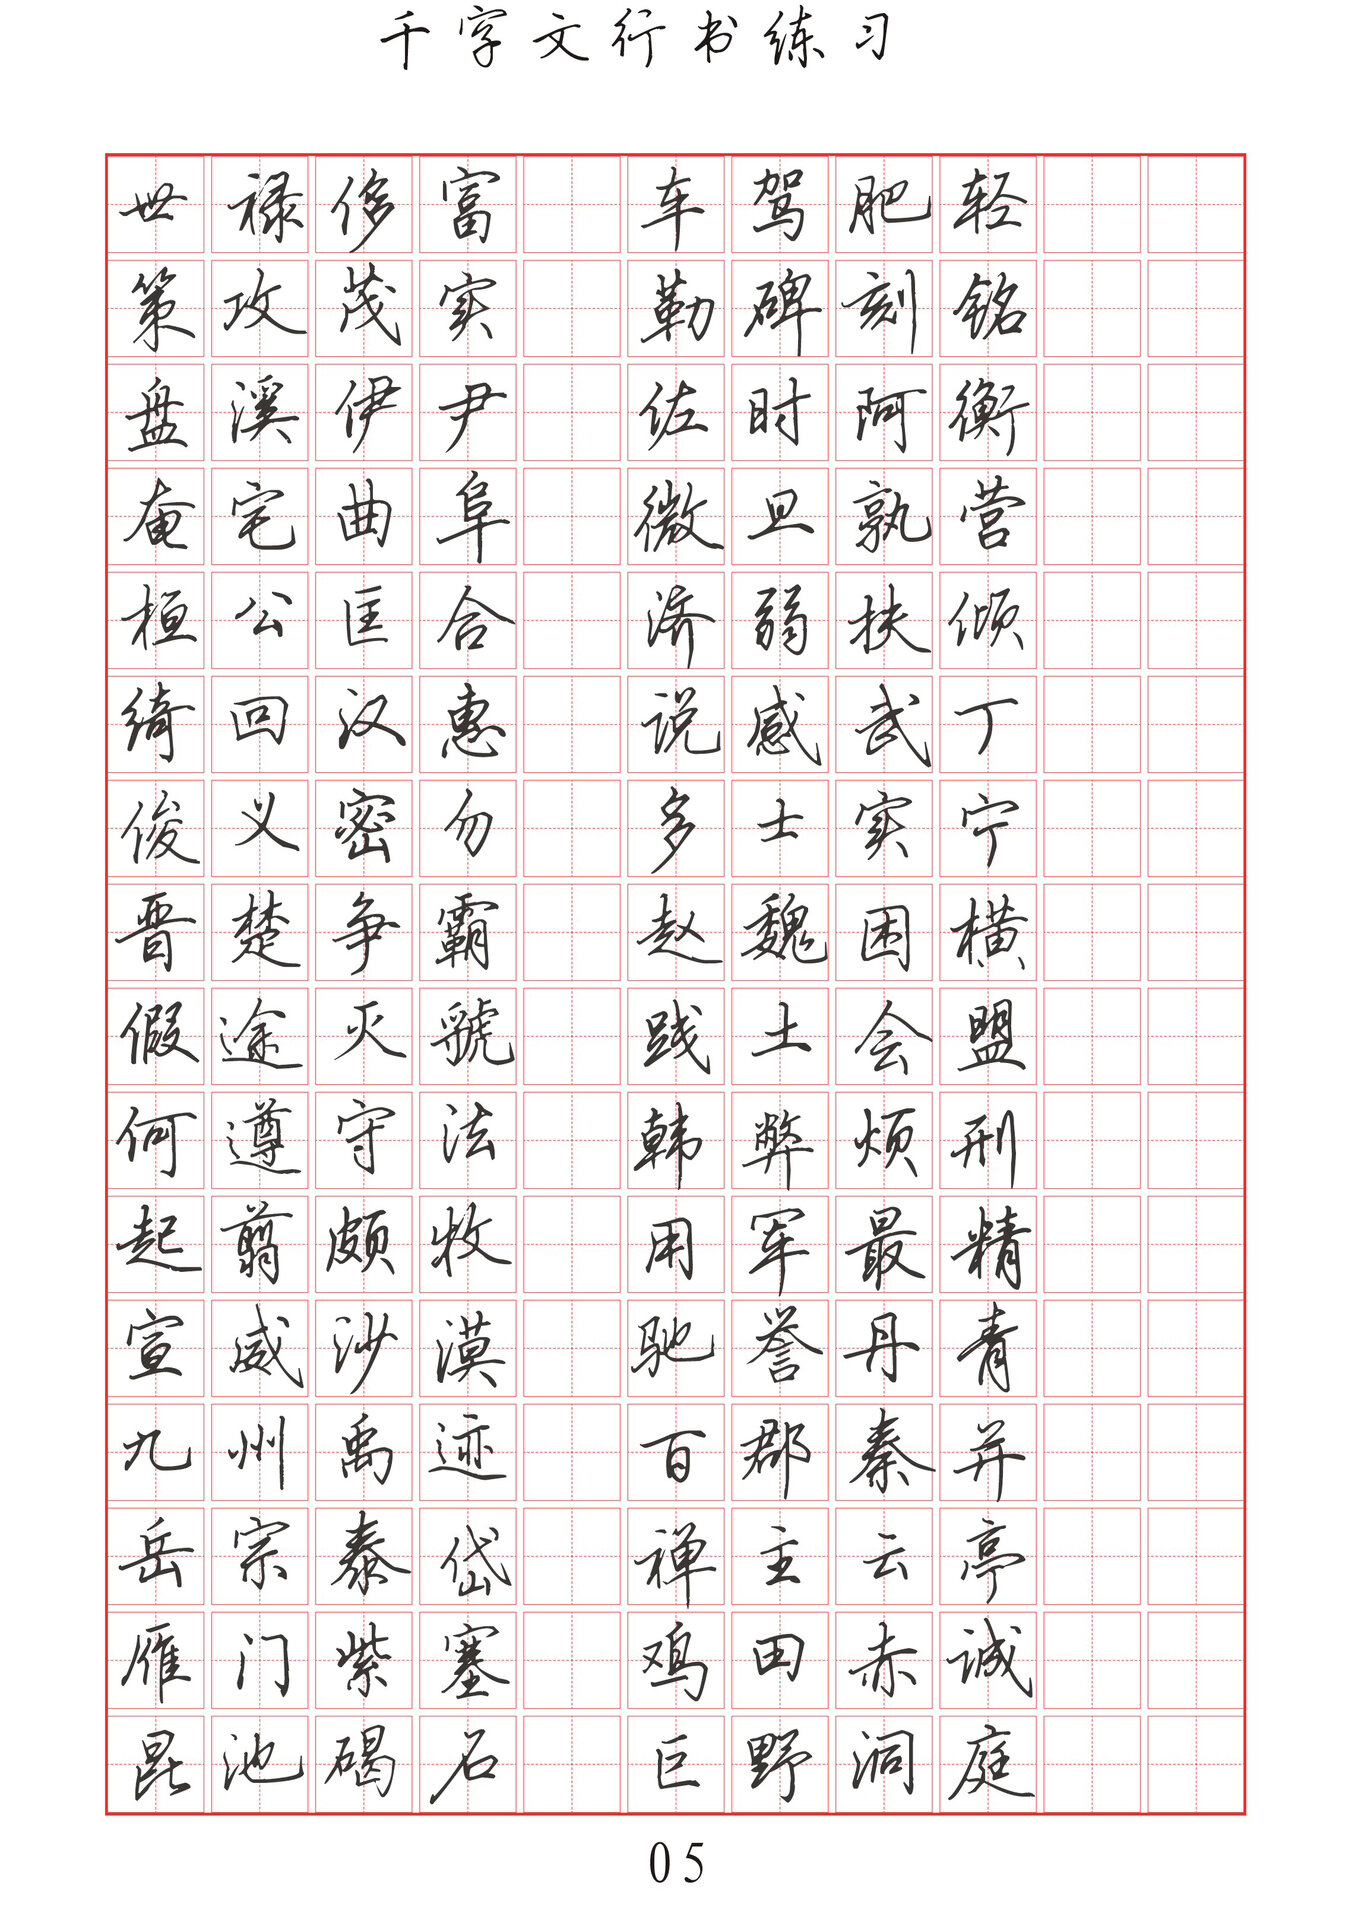 千字文行书练习
世禄侈富 车驾肥轻
策攻茂实 勒碑刻铭
盘溪伊尹 佐时阿衡
奄宅曲阜 微旦孰营
桓公匡合 济弱扶倾
绮回汉惠 说感武丁
俊义密勿 多士实宁
晋楚争霸 赵魏困横
假途灭虢 践土会盟
何遵守法 韩弊烦刑
起翦颇牧 用军最精
宣威沙漠 驰誉丹青
九州禹迹 百郡秦并
岳宗泰岱 禅主云亭
雁门紫塞 鸡田赤诚
昆池碣石 巨野洞庭
05